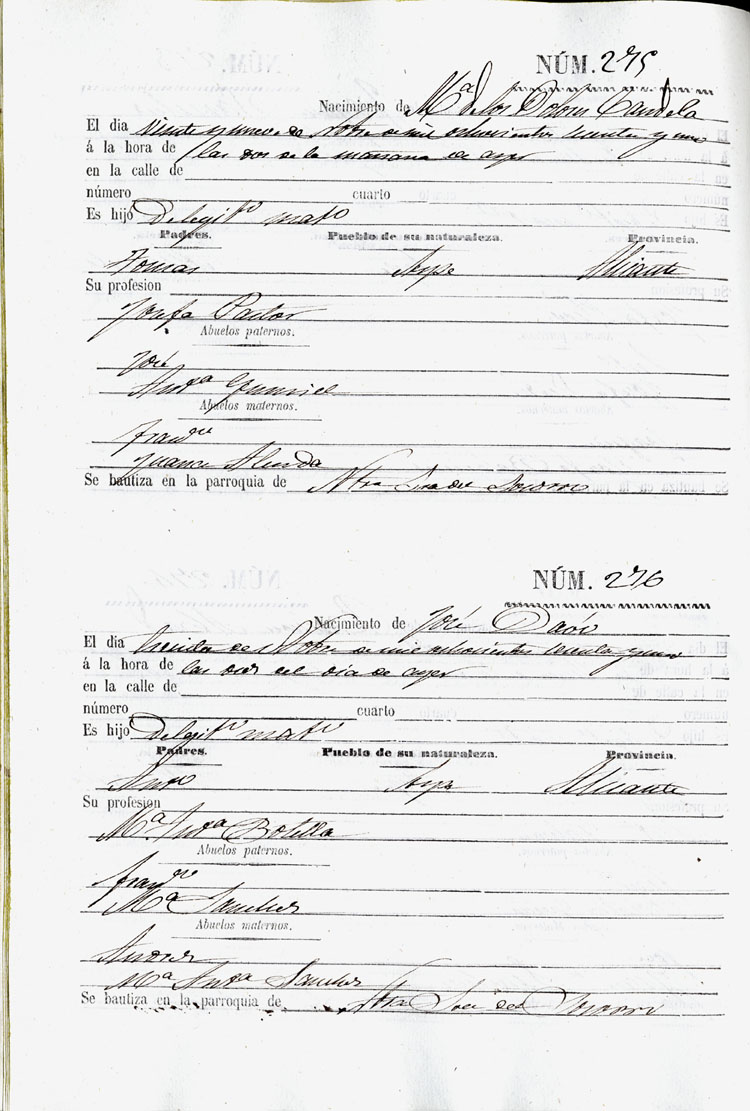 NÚM. 275
Nacimiento de Mª de los Dolores Candela
El dia veinte y nueve de Nobre de mil ochocientos sesenta y uno
á la hora de las dos de la mañana de ayer
en la calle de
número cuarto
Es hijo de legitº matº
Padres. Pueblo de su naturaleza. Provincia.
Tomas Aspe Alicante
Su profesion
Josefa Pastor
Abuelos paternos.
José
Antª
Abuelos maternos.
Franco
Juana Almoda
Se bautiza en la parroquia de Ntra Sra del Socorro
NÚM. 276
Nacimiento de José Davo
El dia treinta de Nobre de mil ochocientos sesenta y uno
á la hora de las diez del dia de ayer
en la calle de
número cuarto
Es hijo de legitº matº
Padres. Pueblo de su naturaleza. Provincia.
Antº Aspe Alicante
Su profesion
Mª Antª Botella
Abuelos paternos.
Franco
Mª Sanchez
Abuelos maternos.
Andres
Mª Antª Sanchez
Se bautiza en la parroquia de Ntra Sra del Socorro